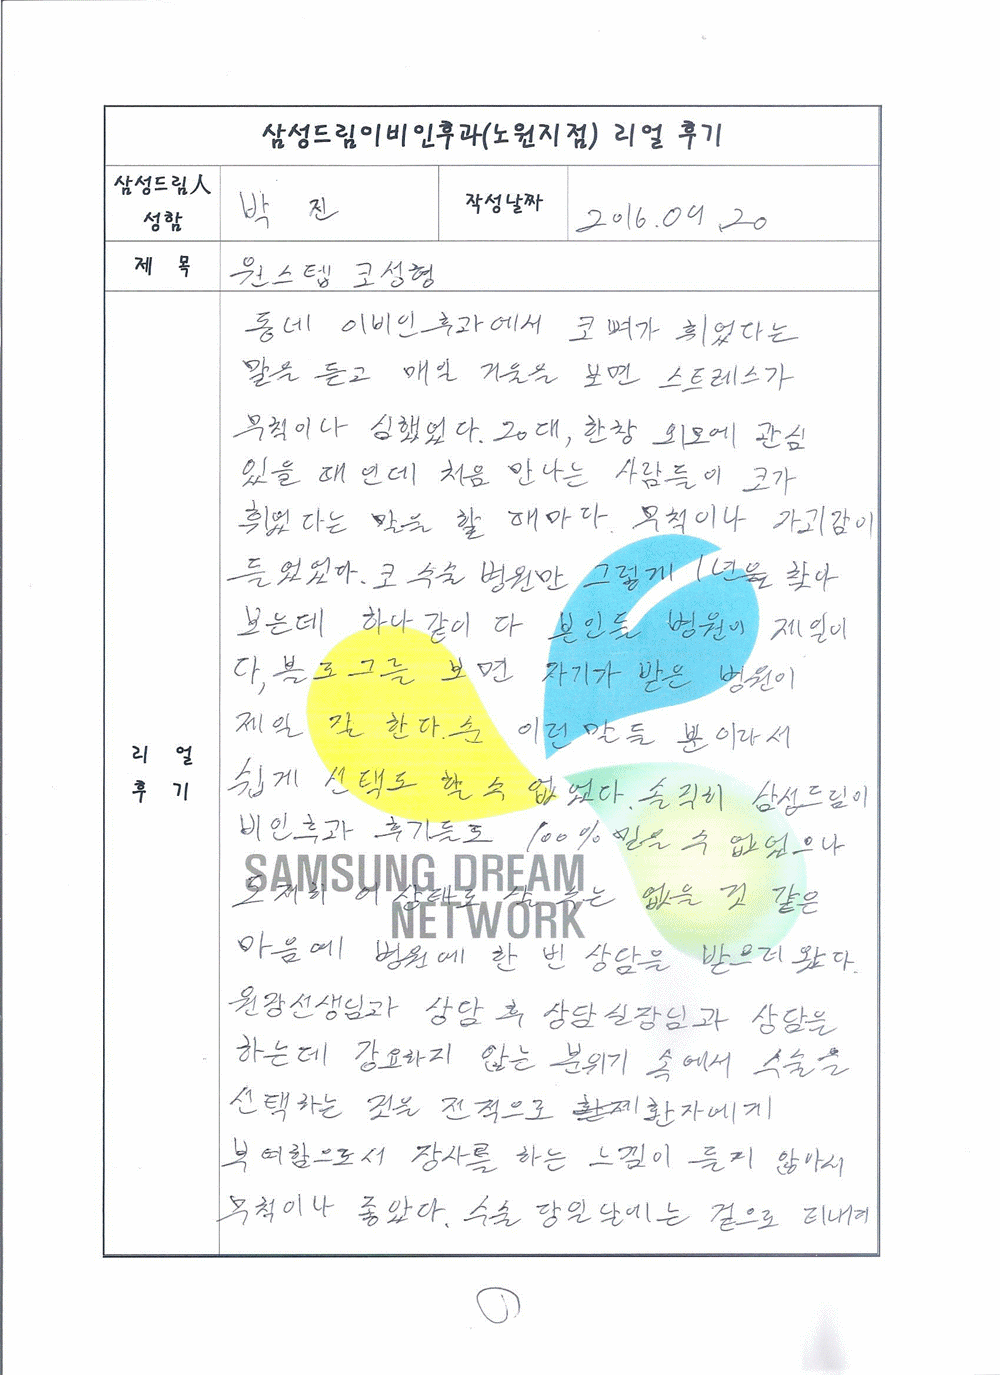 삼성드림이비인후과(노원지점) 리얼 후기
삼성드림人 성함
박 진
작성날짜
2016.09.20
제 목
원스텝 코성형
리 얼 후 기
동네 이비인후과에서 코 뼈가 휘었다는
말을 듣고 매일 거울을 보면 스트레스가
무척이나 심했었다. 20대, 한창 외모에 관심
있을 때 인데 처음 만나는 사람들이 코가
휘었다는 말을 할 때마다. 무척이나 자괴감이
들었었다. 코 수술 병원만 그렇게 1년을 찾아
보는데 하나 같이 다 본인들 병원이 제일이
다, 블로그를 보면 자기가 받은 병원이
제일 잘 한다. 순 이런 말들 뿐이라서
쉽게 선택도 할 수 없었다. 솔직히 삼성드림이
비인후과 후기들도 100% 믿을 수 없었으나
도저히 이 상태로 살 수는 없을 것 같은
마음에 병원에 한 번 상담을 받으러 왔다.
원장선생님과 상담 후 상담실장님과 상담을
하는데 강요하지 않는 분위기 속에서 수술을
선택하는 것을 전적으로 환자에게
부여함으로서 장사를 하는 느낌이 들지 않아서
무척이나 좋았다. 수술 당일날에는 겉으로 티내려
SAMSUNG DREAM
NETWORK